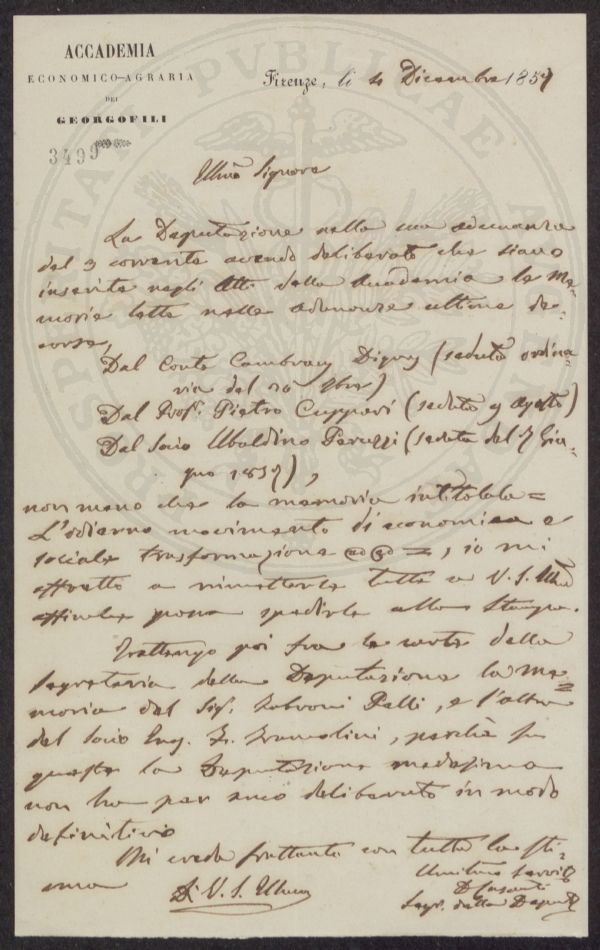 ACCADEMIA
ECONOMICO-AGRARIA
DEI
GEORGOFILI
3499
Firenze, li 4 Dicembre 1857
Illmo Signore
La Deputazione nella sua adunanza
del 3 corrente avendo deliberato che siano
inserite negli Atti della Accademia le Me-
morie lette nelle adunanze ultime de-
corse,
Dal Conte Cambray Digny (seduta ordina-
ria del 9bre)
Dal Prof. Pietro Cuppari (seduta 9 Agosto)
Dal Socio Ubaldino Peruzzi (seduta del 7 Giu-
gno 1857),
non meno che la memoria intitolata =
L'odierno movimento di economica e
sociale trasformazione =, io mi
affretto a rimetterle tutte a V. S. Illma
affinche possa spedirle alla Stampa.
Trattengo poi fra le carte della
Segreteria della Deputazione la Me=
moria del Sig. Fabroni Palli, e l'altra
del Socio Ing. F. perchè su
queste la Deputazione medesima
non ha per anco deliberato in modo
definitivo
Mi creda frattanto con tutta la sti=
ma
Di V. S. Illma
Servit
Segr. della Deput
PROSPERITATI PUBLICAE AUGENDAE